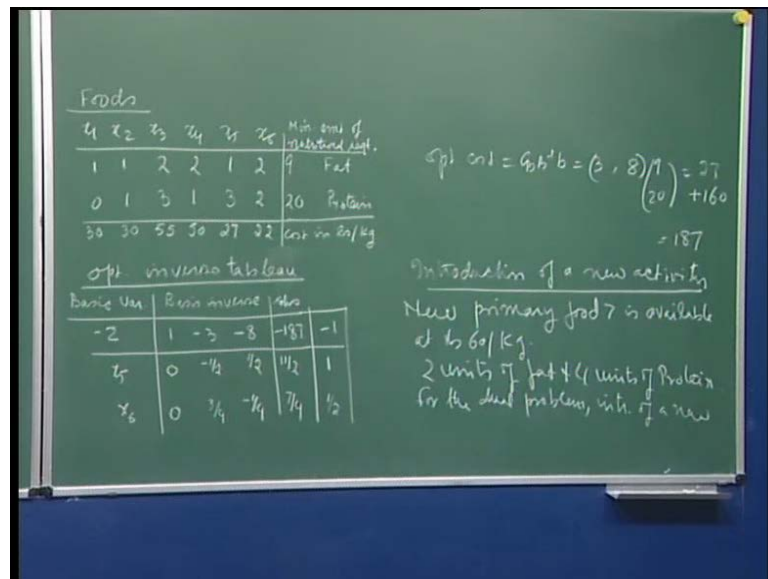 Foods
x1 x2 x3 x4 x5 x6 Min. amt of nutrient reqt.
1 1 2 2 1 2 9 Fat
0 1 3 1 3 2 20 Protein
30 30 55 50 27 22 cost in Rs/kg
opt. inverse tableau
Basic Var Basis inverse rhs
-z 1 -3 -8 -187 -1
x5 0 -1/2 1/2 11/2 1
x6 0 3/4 -1/4 7/4 1/2
opt cost = CBB⁻¹b = (3, 8) (9 20) = 27 +160
= 187
Introduction of a new activity
New primary food 7 is available
at Rs 60/Kg.
2 units of fat & 4 units of Protein
For the dual problem, intr. of a new